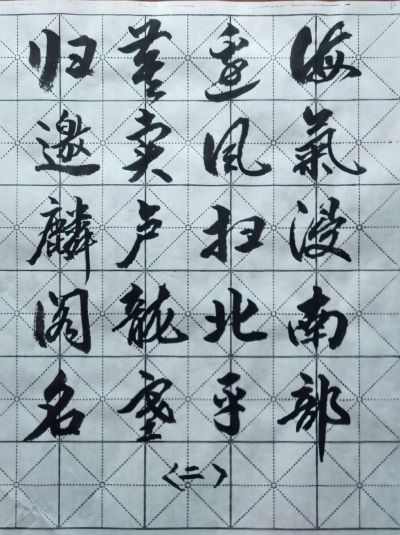 海氣浸南部
边风扫北平
莫卖卢龍塞
归邀麟阁名
〈二〉